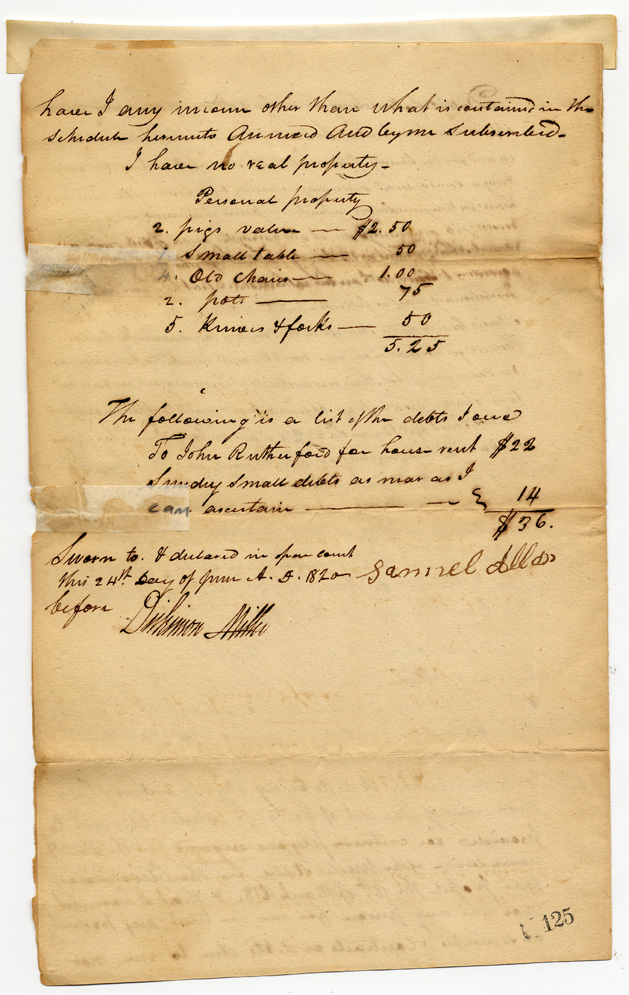 have I any income other than what is contained in the
schedule hereunto annexed and by me Subscribed.
I have no real property.
Personal property
2. pigs value — $2.50
1. Small table — 50
4. Old Chairs — 1.00
2. pots — 75
5. Knives & forks — 50
5.25
The following is a list of the debts I owe
To John Rutherford for house rent $22
Sundry Small debts as near as I
can ascertain — 14
$36.
Sworn to & declared in open court
this 24th Day of June A. D. 1820 Samuel Allen
before Dickinson Miller
125